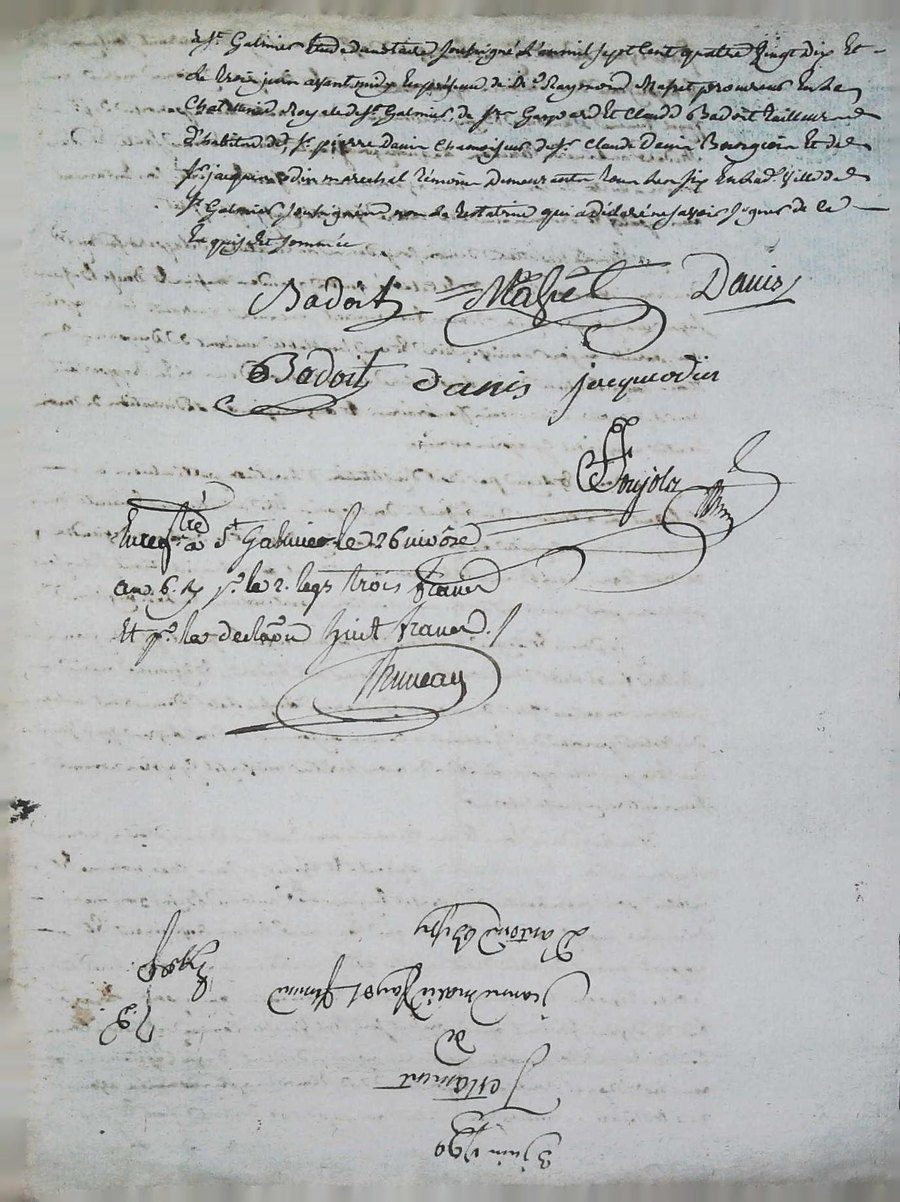 à St. Galmier Etude du notaire soussigné L'an mil sept Cent quatre Vingt Dix Et
le trois juin avant midy En présence de Me. Raymond Mahet procureur En la
Chatellenie Royale de St. Galmier, de srs Gaspard Et Claude Badoit tailleurs
d'habits de, sr. pierre Danis Chamoiseur de sr Claude Danis Bourgeois Et de
sr. jacques odin marechal témoins Demeurants tous En lad. Ville de
St. Galmier soussignés non la testatrice qui a déclaré ne savoir signer de ce
Requise Et sommée
Badoit Mahet Danis
Badoit danis jacque odin
Poujola
Enregtré à St Galmier le 26 nivôse
an 6. pr. le 2. legs trois francs
Et pr. la declaon huit francs.
Bruneau
3 juin 1790
Testament
de
jeanne marie femme
D'antoine